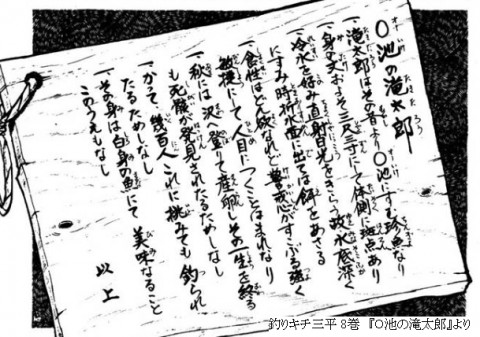 〇池の滝太郎
一、滝太郎はその昔より〇池にすむ珍魚なり
一、身の丈およそ三尺三寸にて体側に斑点あり
一、冷水を好み直射日光をきらう故水底深く
にすみ時折水面に出ては餌をあさる
一、食性はどん欲なれど警戒心がすこぶる強く
敏捷にして人目につくことはまれなり
一、秋には沢へ登りて産卵しその一生を終る
も死骸が発見されたるためしなし
一、かって、幾百人これに挑みても釣られ
たるためしなし
一、その身は白身の魚にて美味なること
このうえもなし
以上
釣りキチ三平 8巻 『〇池の滝太郎』より